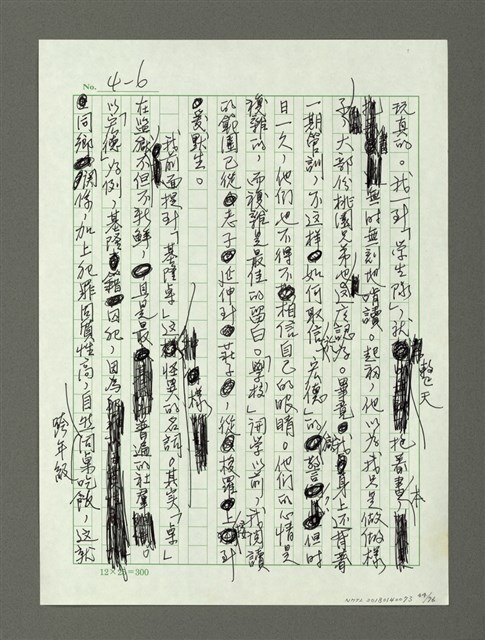 No. 4-6
玩真的。我一到「學生隊」，我整天抱着書本，
無時無刻地啃讀。起初，他以為我只是做做樣
子，大部份桃園兄弟也這麼認為。畢竟，我身上还背着
一期管訓，不这样，如何取信「宏德」的警，但时
日一久，他們也不得不相信自己的眼睛。他們的心情是
複雜的，而複雜是最佳的留白。「學校」開學以前，我閱讀
的範圍已從老子延伸到莊子，從梭羅上到
愛默生。
我前面提到「基隆桌」这樣怪異的名詞。其实「桌」
在监獄不但不新鮮，且是最普遍的社羣。
以「宏德」为例，基隆籍囚犯，因為
同鄉関係，加上犯罪同質性高，自然同桌吃飯，这就
跨年級
12×25=300